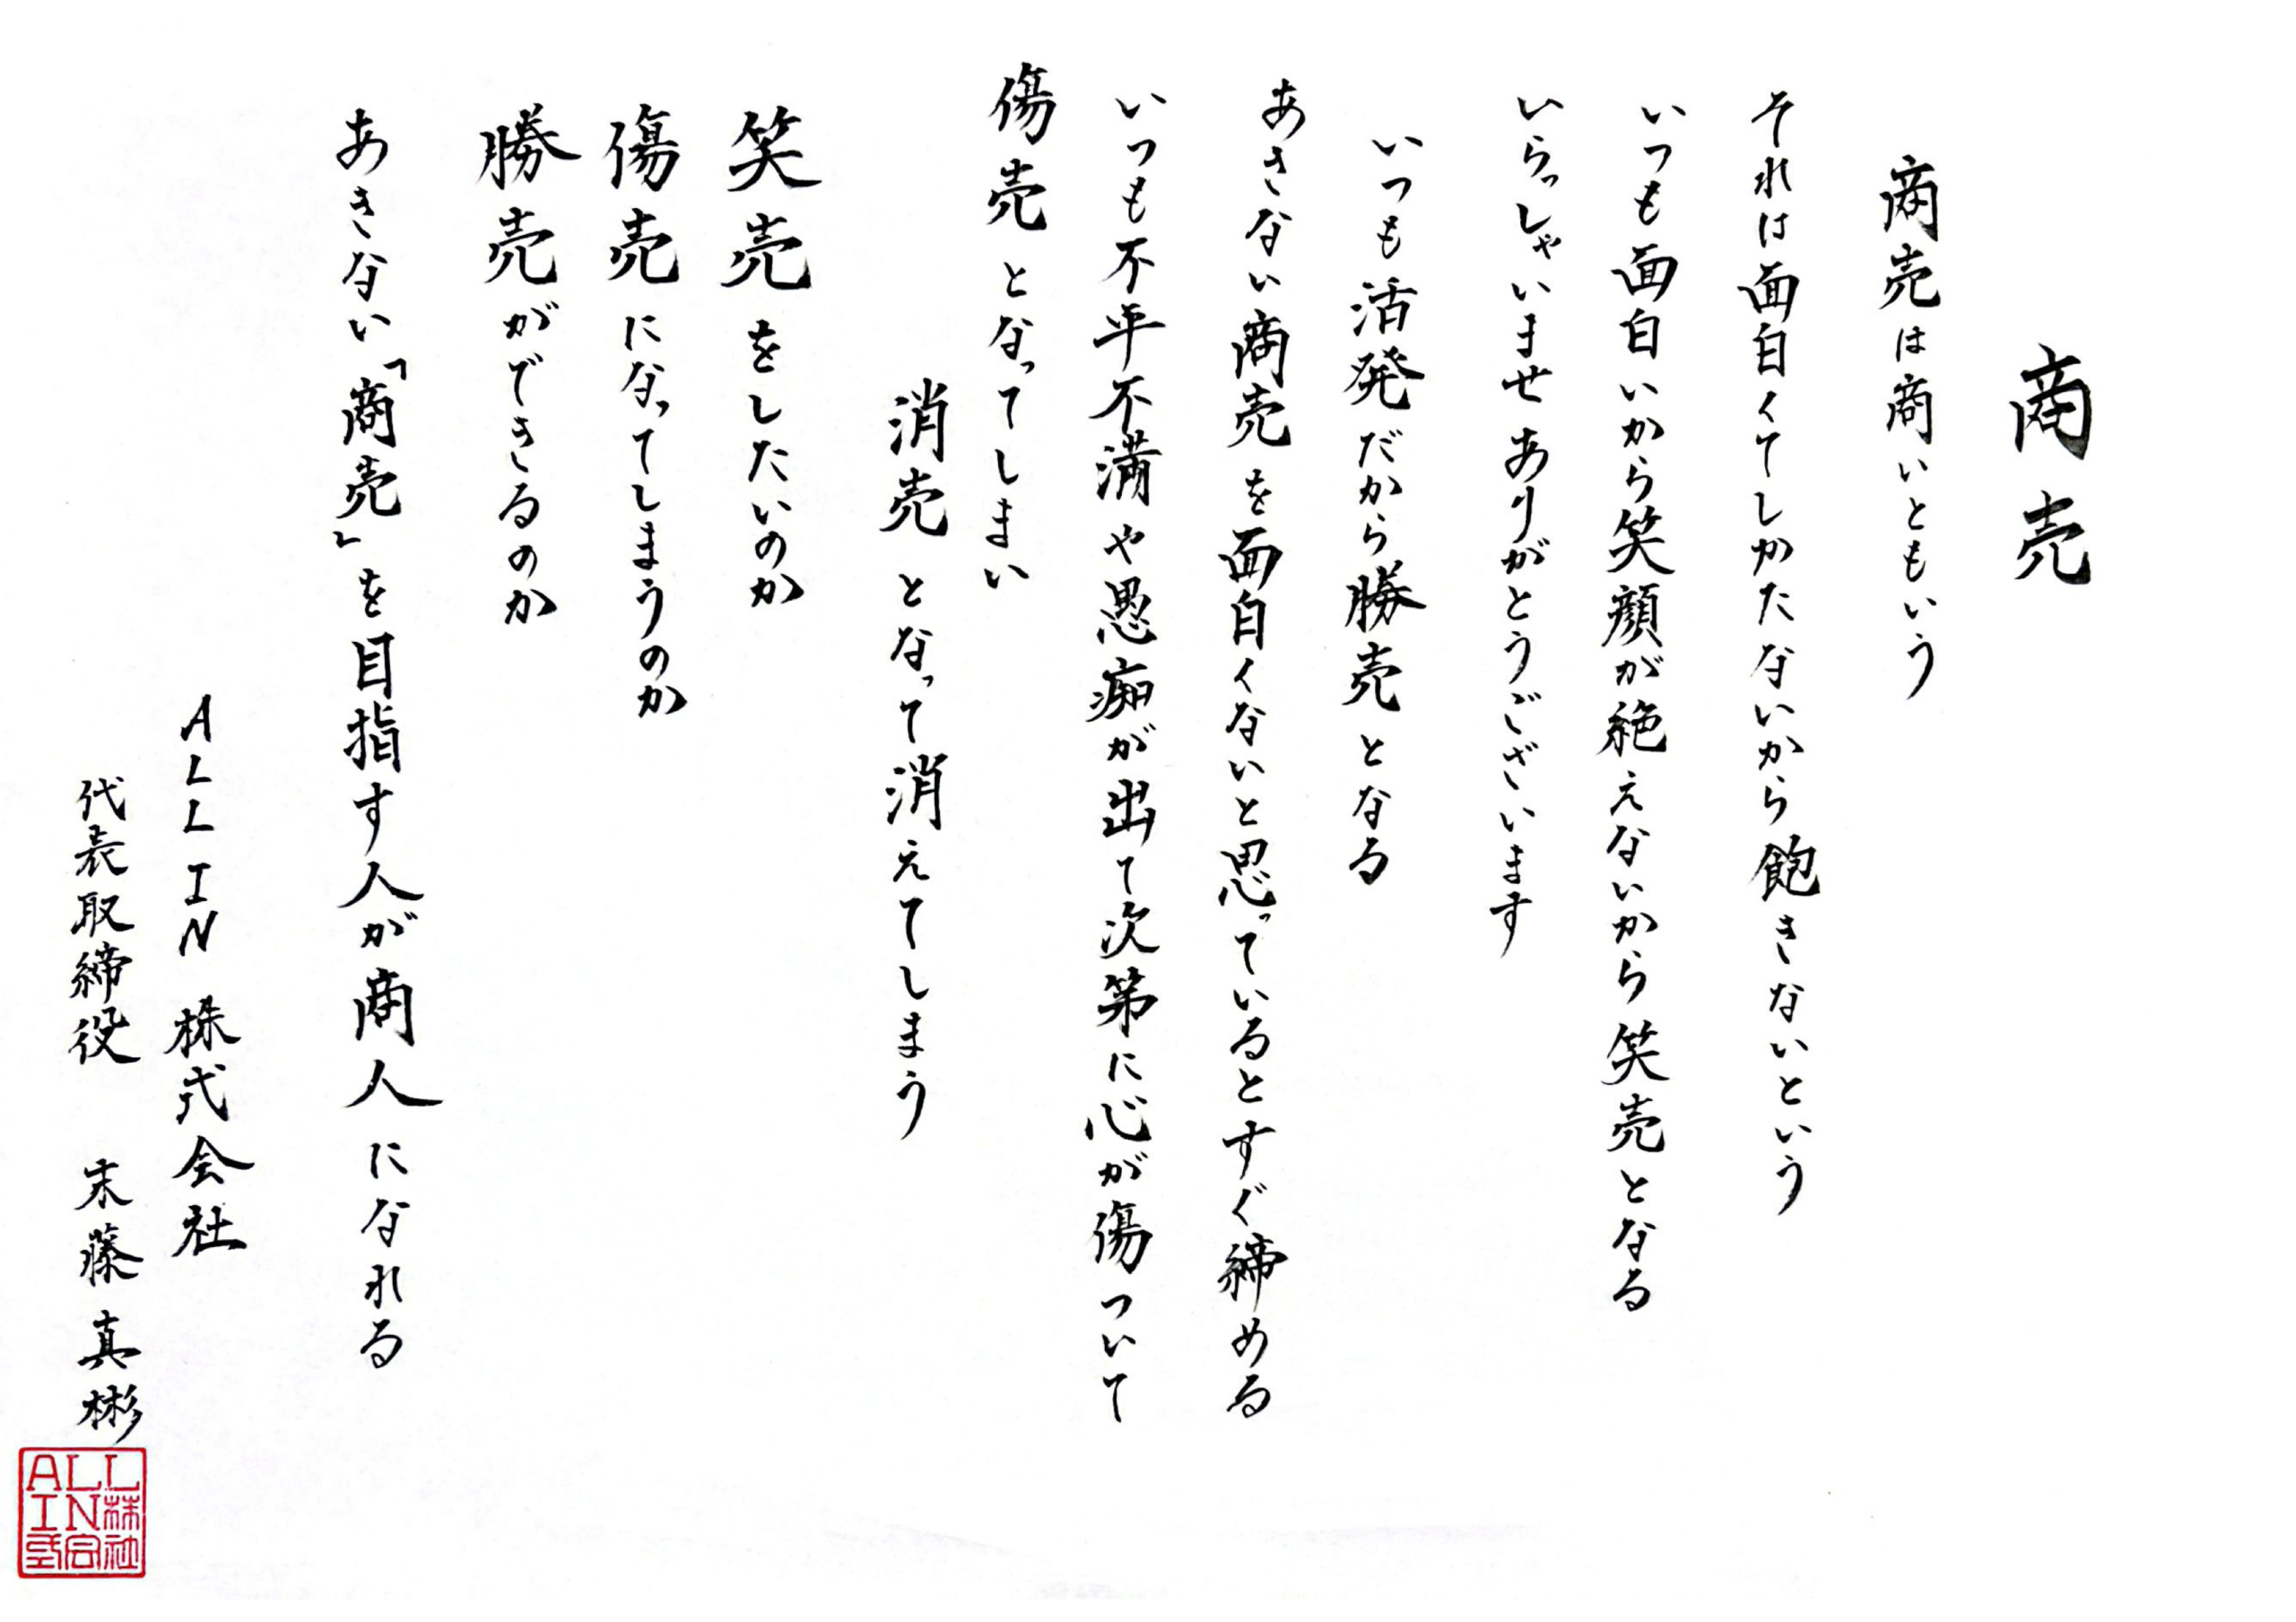 商売
商売は商いともいう
それは面白くてしかたないから飽きないという
いつも面白いから笑顔が絶えないから笑売となる
いらっしゃいませ ありがとうございます
いつも活発だから勝売となる
あきない商売を面白くないと思っているとすぐ締める
いつも不平不満や愚痴が出て次第に心が傷ついて
傷売となってしまい
消売となって消えてしまう
笑売をしたいのか
傷売になってしまうのか
勝売ができるのか
あきない「商売」を目指す人が商人になれる
ALL IN 株式会社
代表取締役 末藤真彬
ALL
IN株
式会社